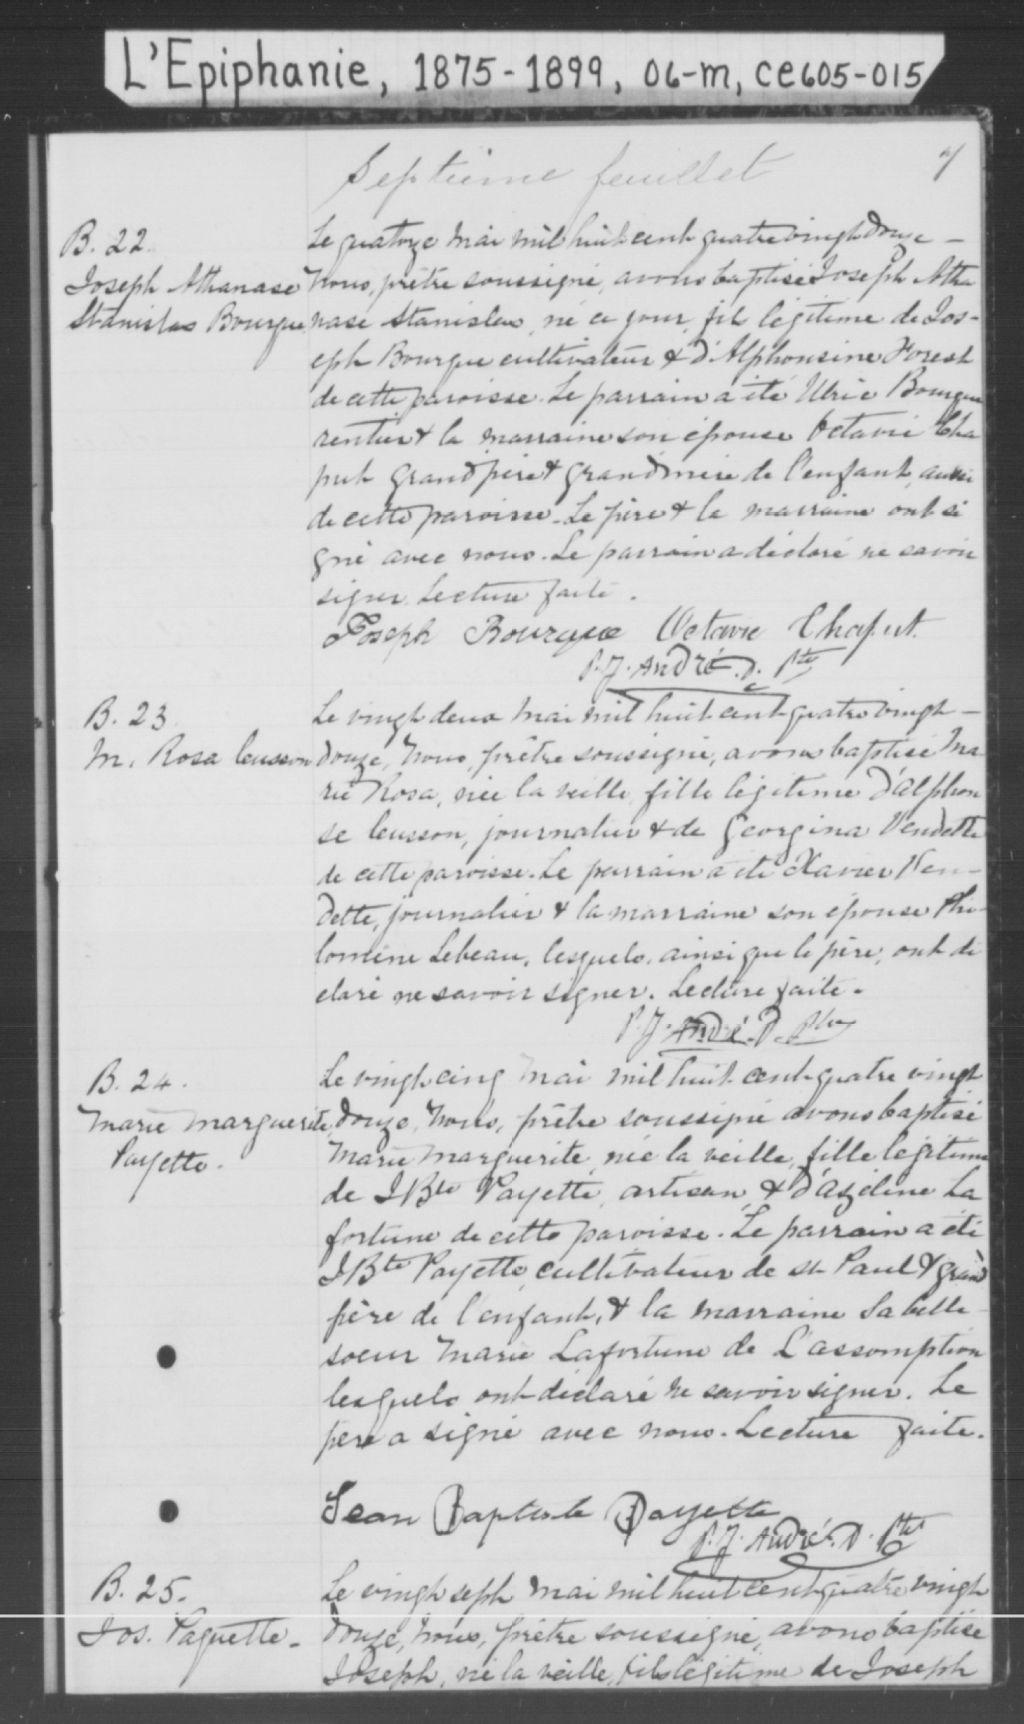 L'Epiphanie, 1875-1899, 06-m, CE605-015
Septième feuillet
7
B. 22.
Joseph Athanase
Stanislas Bourque
Le quatorze Mai mil huit cent quatre vingt douze –
Nous, prêtre soussigné, avons baptisé Joseph Atha
nase Stanislas, né ce jour, fils légitime de Jos-
eph Bourque cultivateur & d'Alphonsine Forest
de cette paroisse. Le parrain a été Ulric Bourque
rentier & la marraine son épouse Octavie Cha
put grand père & grand mère de l'enfant, aussi
de cette paroisse. Le père & la marraine ont si
gné avec nous. Le parrain a déclaré ne savoir
signer. Lecture faite.
Joseph Bourque Octavie Chaput
P. J. André. D. Ptre
B. 23
M. Rosa Cusson
Le vingt deux Mai mil huit cent quatre vingt –
douze, Nous, prêtre soussigné, avons baptisé Ma
rie Rosa, née la veille, fille légitime d'Alphon
se Cusson, journalier & de Georgina Vendette
de cette paroisse. Le parrain a été Xavier Ven-
dette, journalier & la marraine son épouse Phi-
lomène Lebeau, lesquels, ainsi que le père, ont dé
claré ne savoir signer. Lecture faite.
P. J. André. D. Ptre
B. 24.
Marie Marguerite
Payette.
Le vingt cinq Mai mil huit cent quatre vingt
douze, Nous, prêtre soussigné avons baptisé
Marie Marguerite, née la veille, fille légitime
de J Bte Payette, artisan, & d'Azeline La
fortune de cette paroisse. Le parrain a été
J Bte Payette, cultivateur de St Paul & grand
père de l'enfant, & la marraine sa belle
soeur Marie Lafortune de L'assomption
lesquels ont déclaré ne savoir signer. Le
père a signé avec nous. Lecture faite.
Jean Baptiste Payette
P. J. André. D. Ptre
B. 25.
Jos. Paquette.
Le vingt sept Mai mil huit cent quatre vingt
douze, Nous, prêtre soussigné, avons baptisé
Joseph, né la veille, fils légitime de Joseph